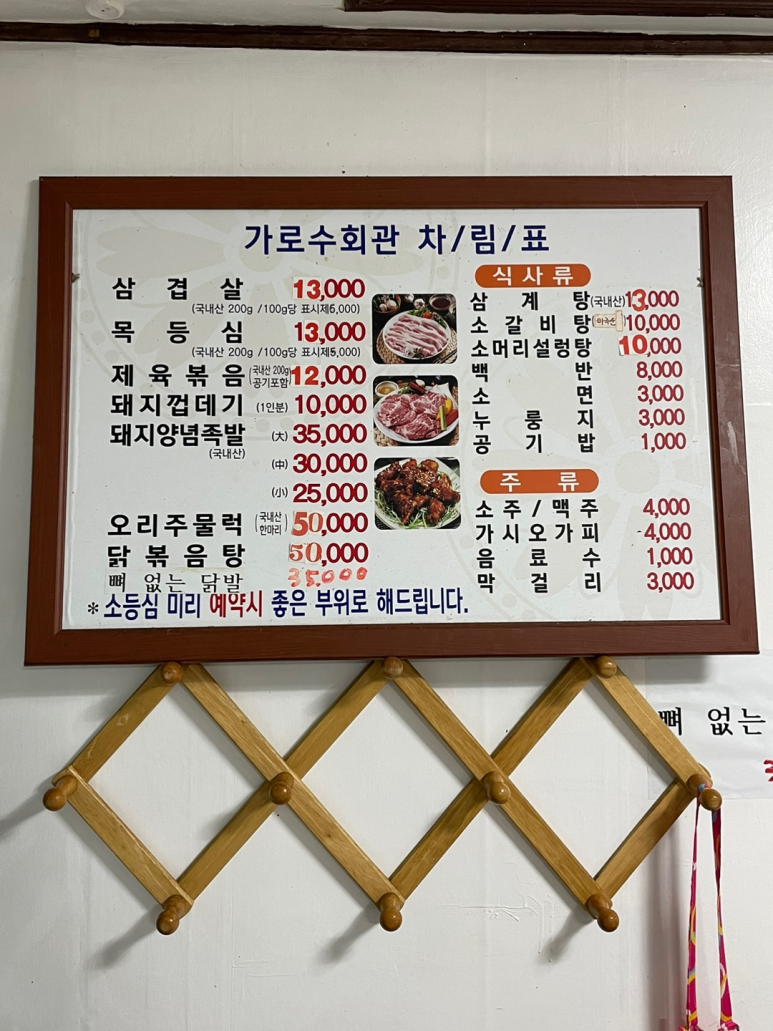 가로수회관 차/림/표
삼겹살 13,000
(국내산 200g /100g당 표시제6,000)
목등심 13,000
(국내산 200g /100g당 표시제6,000)
제육볶음 (국내산 200g 공기포함) 12,000
돼지껍데기 (1인분) 10,000
돼지양념족발 (大) 35,000
(국내산)
(中) 30,000
(小) 25,000
오리주물럭 (국내산 한마리) 50,000
닭볶음탕 50,000
뼈 없는 닭발 35.000
*소등심 미리 예약시 좋은 부위로 해드립니다.
식사류
삼계탕(국내산) 13,000
소갈비탕 10,000
소머리설렁탕 10,000
백반 8,000
소면 3,000
누룽지 3,000
공기밥 1,000
주류
소주/맥주 4,000
가시오가피 4,000
음료수 1,000
막걸리 3,000
뼈 없는